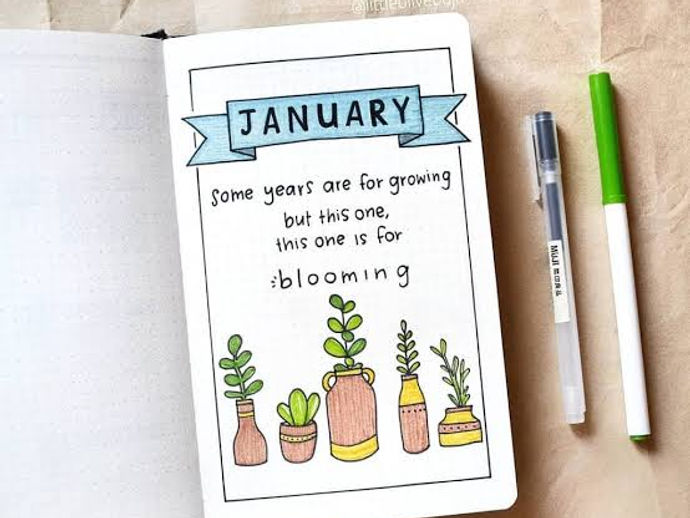 @littleolivebujo
JANUARY
Some years are for growing
but this one,
this one is for
blooming
MUJI 無印良品